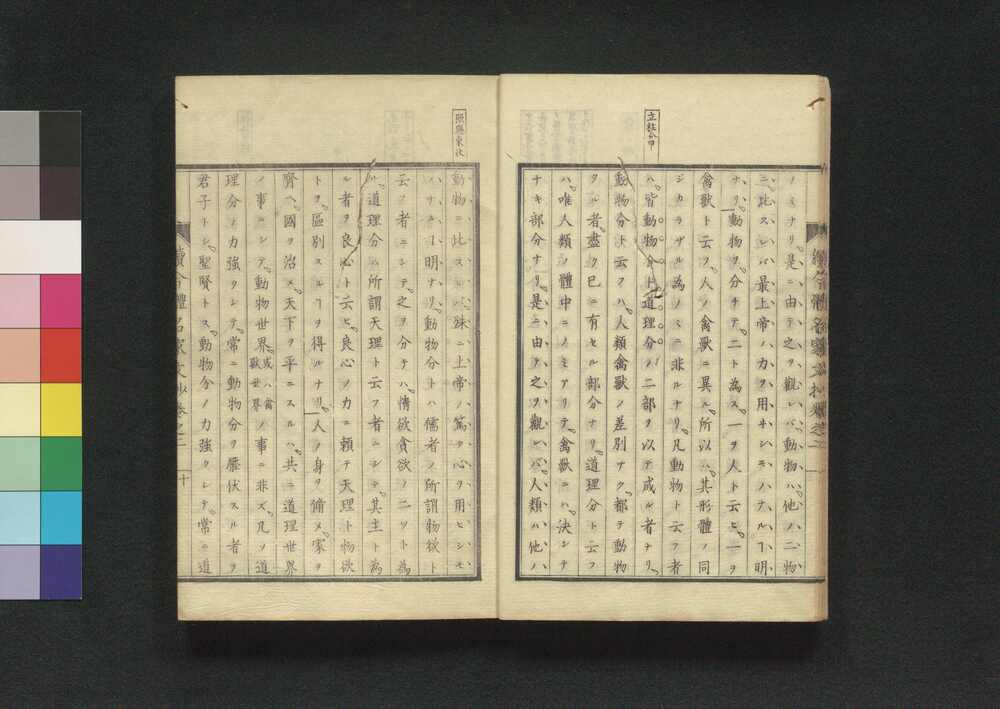 立柱分甲
ノミナリ。是ニ由テ之ヲ觀レバ、動物ハ、他ノ二物
ニ、比スレバ、最上帝ノ力ヲ用ヰシモノナルヿ明
ナリ。動物ヲ分チテ、二ト為ス。一ヲ人ト云ヒ。一ヲ
禽獸ト云フ。人ノ禽獸ニ異ル所以ハ。其形體ノ同
ジカラザル為ノミニ非ルナリ。凡動物ト云フ者
ハ。皆動物分ト道理分ノ二部ヲ以テ成ル者ナリ。
動物分ト云フハ。人類禽獸ノ差別ナク。都テ動物
タル者。盡ク已ニ有セル部分ナリ。道理分ト云フ
ハ。唯人類ノ體中ニノミアリテ。禽獸ニハ。決シテ
ナキ部分ナリ。是ニ由テ之ヲ觀レバ。人類ハ他ノ
照應東北
動物ニ、比スレバ、殊ニ上帝ノ、篤ク心ヲ用ヒシモ
ノ、ナルヿ明ナリ。動物分トハ儒者ノ所謂物欲ト
云フ者ニシテ。之ヲ分チハ。情欲貪欲ノ二ツト為
ル。道理分ハ所謂天理ト云フ者ニシテ。其主ト為
ル者ヲ良心ト云ヒ。良心ノ力ニ頼テ天理ト物欲
トヲ。區別スルヿヲ得ルナリ。人ノ身ヲ脩メ。家ヲ
齊ヘ。國ヲ治メ。天下ヲ平ニスルハ。共ニ道理世界
ノ事ニシテ。動物世界。或ハ禽獸世界ノ事ニ非ズ。凡ソ道
理分ノ力強クシテ。常ニ動物分ヲ壓伏スル者ヲ
君子トシ。聖賢トス。動物分ノ力強クシテ。常ニ道
續今體名家文抄卷之二
十